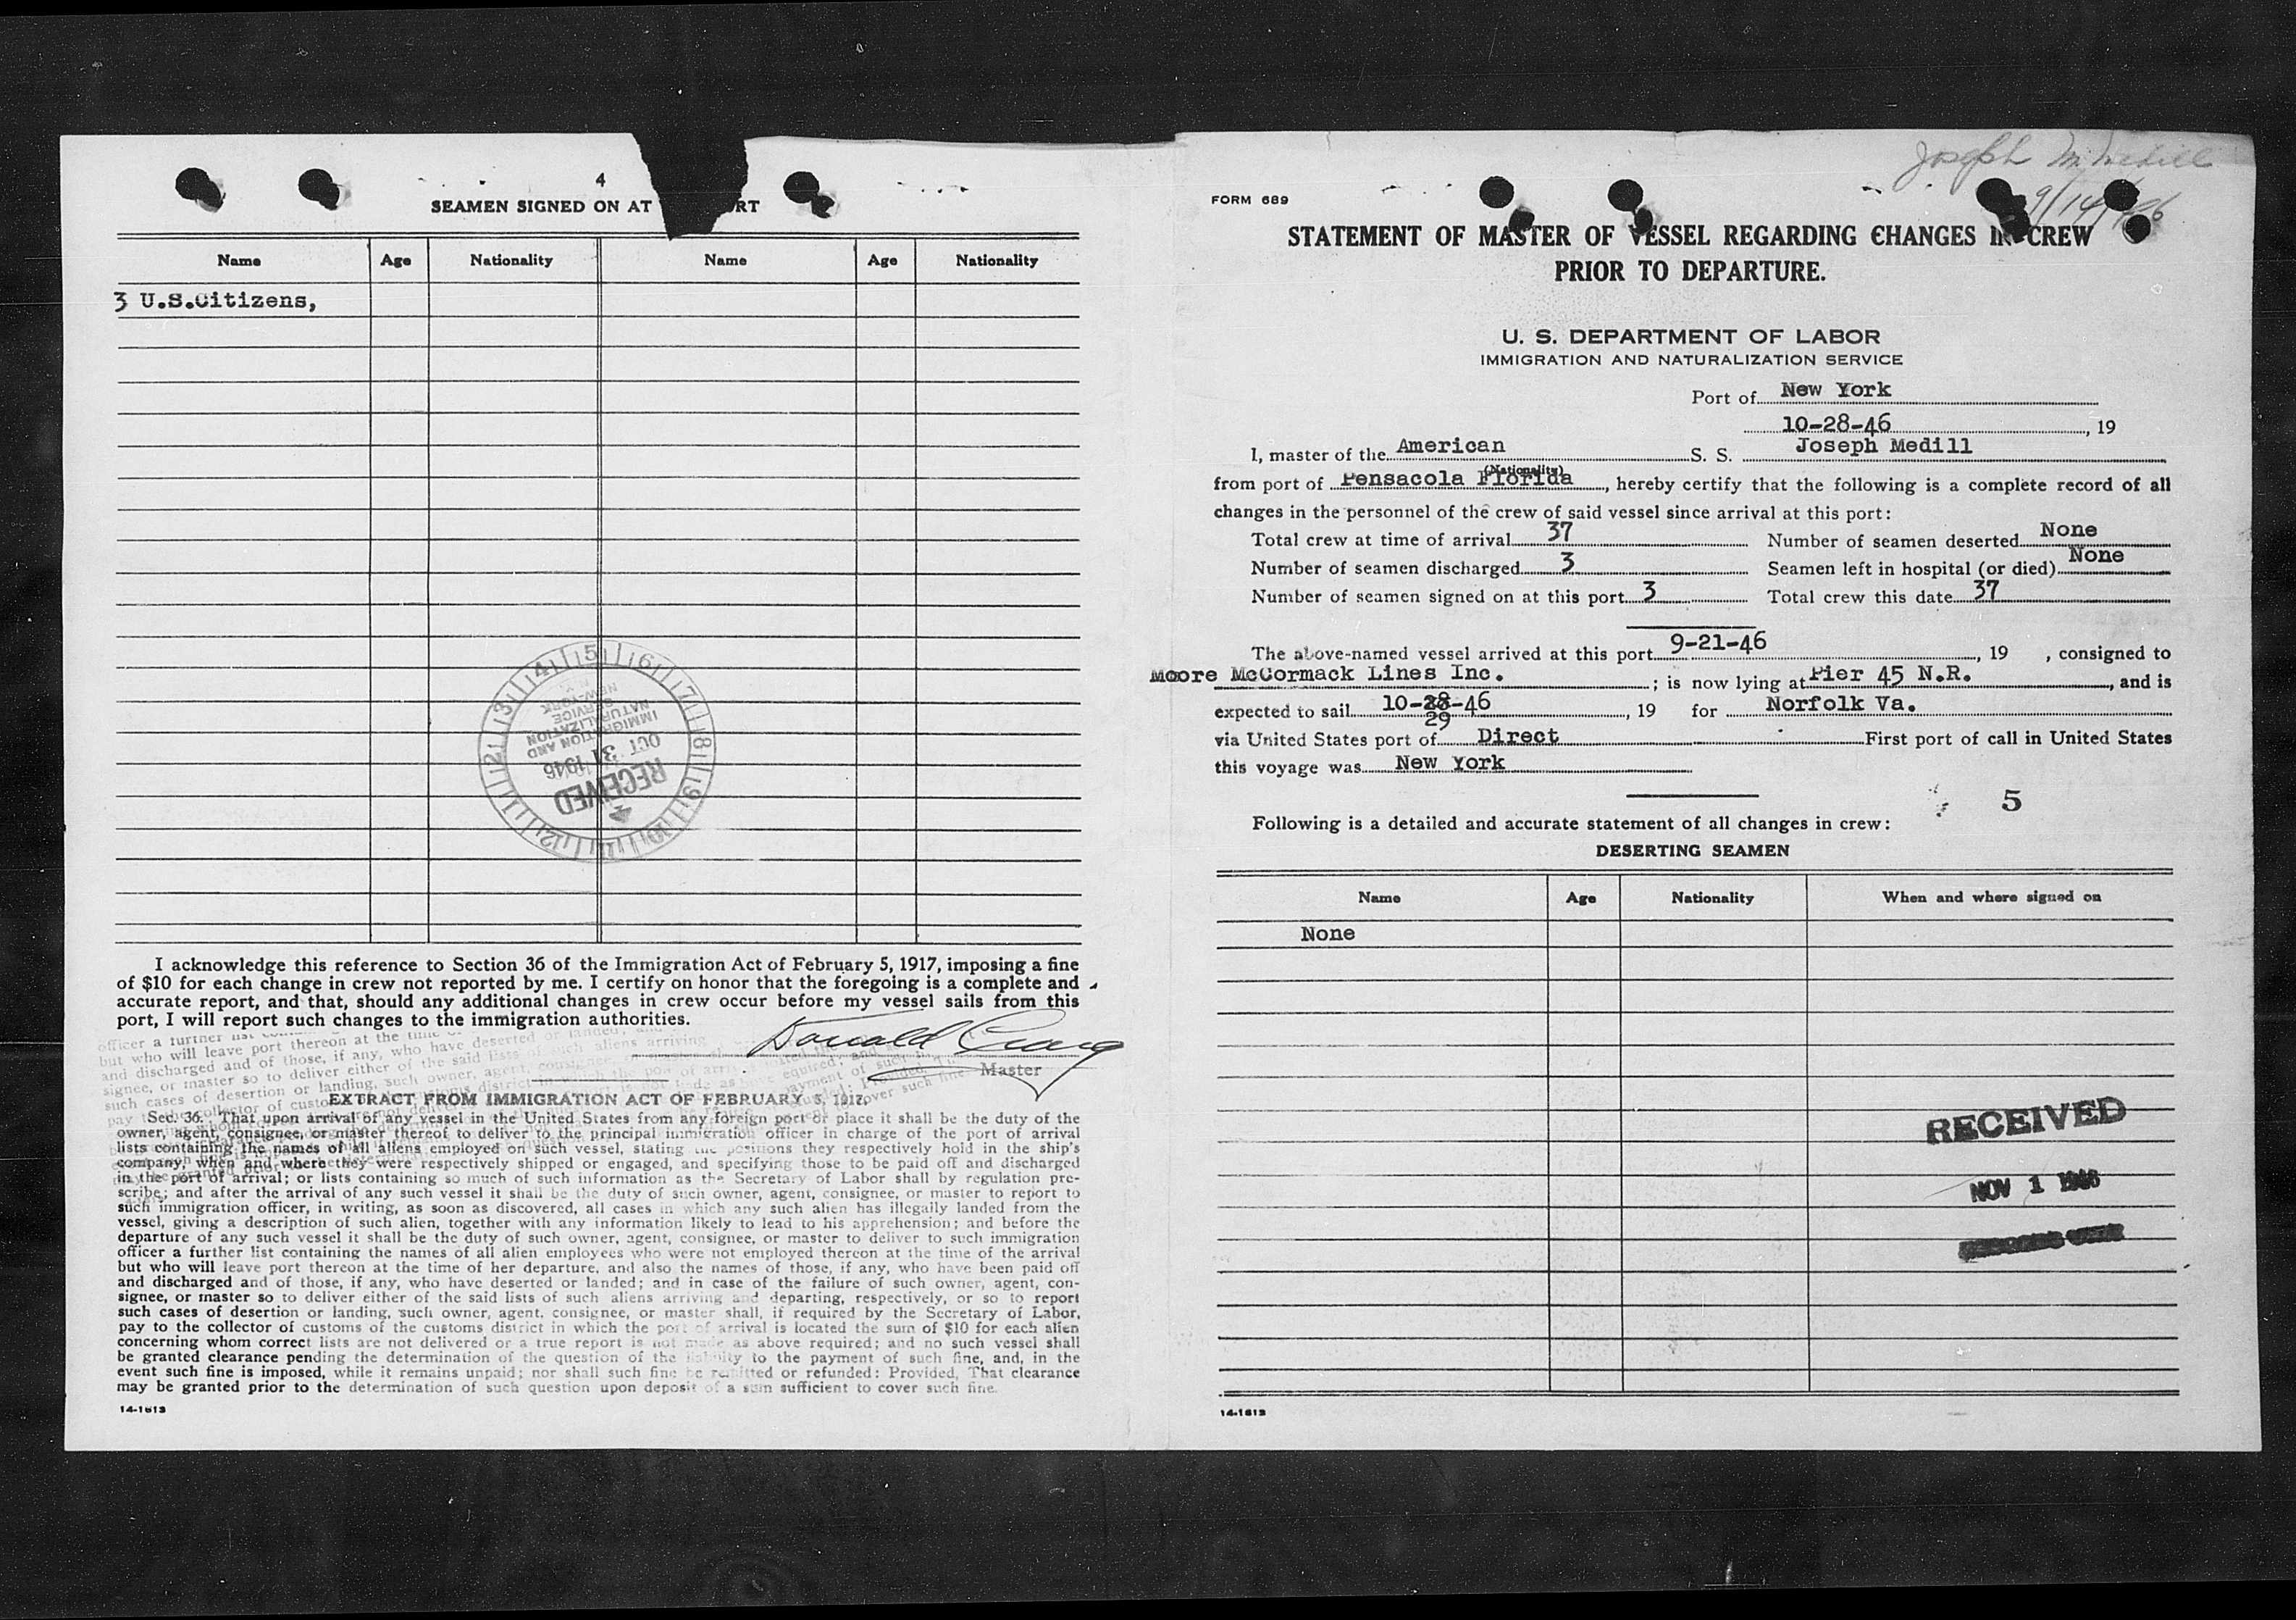 4
SEAMEN SIGNED ON AT RT
Name Age Nationality Name Age Nationality
3 U.S.Citizens,
5 6 7 8 9 10 11 12 1 2 3 4
NEW-YORK
SERVICE
NATURALIZATION
IMMIGRATION AND
OCT 31 1946
RECEIVED
I acknowledge this reference to Section 36 of the Immigration Act of February 5, 1917, imposing a fine
of $10 for each change in crew not reported by me. I certify on honor that the foregoing is a complete and
accurate report, and that, should any additional changes in crew occur before my vessel sails from this
port, I will report such changes to the immigration authorities.
Donald Craig
Master
EXTRACT FROM IMMIGRATION ACT OF FEBRUARY 5, 1917.
Sec. 36. That upon arrival of any vessel in the United States from any foreign port or place it shall be the duty of the
owner, agent, consignee, or master thereof to deliver to the principal immigration officer in charge of the port of arrival
lists containing the names of all aliens employed on such vessel, stating the positions they respectively hold in the ship's
company, when and where they were respectively shipped or engaged, and specifying those to be paid off and discharged
in the port of arrival; or lists containing so much of such information as the Secretary of Labor shall by regulation pre-
scribe; and after the arrival of any such vessel it shall be the duty of such owner, agent, consignee, or master to report to
such immigration officer, in writing, as soon as discovered, all cases in which any such alien has illegally landed from the
vessel, giving a description of such alien, together with any information likely to lead to his apprehension; and before the
departure of any such vessel it shall be the duty of such owner, agent, consignee, or master to deliver to such immigration
officer a further list containing the names of all alien employees who were not employed thereon at the time of the arrival
but who will leave port thereon at the time of her departure, and also the names of those, if any, who have been paid off
and discharged and of those, if any, who have deserted or landed; and in case of the failure of such owner, agent, con-
signee, or master so to deliver either of the said lists of such aliens arriving and departing, respectively, or so to report
such cases of desertion or landing, such owner, agent, consignee, or master shall, if required by the Secretary of Labor,
pay to the collector of customs of the customs district in which the port of arrival is located the sum of $10 for each alien
concerning whom correct lists are not delivered or a true report is not made as above required; and no such vessel shall
be granted clearance pending the determination of the question of the liability to the payment of such fine, and, in the
event such fine is imposed, while it remains unpaid; nor shall such fine be remitted or refunded: Provided, That clearance
may be granted prior to the determination of such question upon deposit of a sum sufficient to cover such fine.
14-1613
Joseph M. Medill
9/14/46
FORM 689
STATEMENT OF MASTER OF VESSEL REGARDING CHANGES IN CREW
PRIOR TO DEPARTURE.
U. S. DEPARTMENT OF LABOR
IMMIGRATION AND NATURALIZATION SERVICE
Port of New York
10-28-46 , 19
I, master of the American S. S. Joseph Medill
(Nationality)
from port of Pensacola Florida , hereby certify that the following is a complete record of all
changes in the personnel of the crew of said vessel since arrival at this port:
Total crew at time of arrival 37 Number of seamen deserted None
Number of seamen discharged 3 Seamen left in hospital (or died) None
Number of seamen signed on at this port 3 Total crew this date 37
The above-named vessel arrived at this port 9-21-46 , 19 , consigned to
Moore McCormack Lines Inc. ; is now lying at Pier 45 N.R. , and is
expected to sail 10-28-46 , 19 for Norfolk Va.
29
via United States port of Direct First port of call in United States
this voyage was New York
5
Following is a detailed and accurate statement of all changes in crew:
DESERTING SEAMEN
Name Age Nationality When and where signed on
None
RECEIVED
NOV 1 1946
14-1613